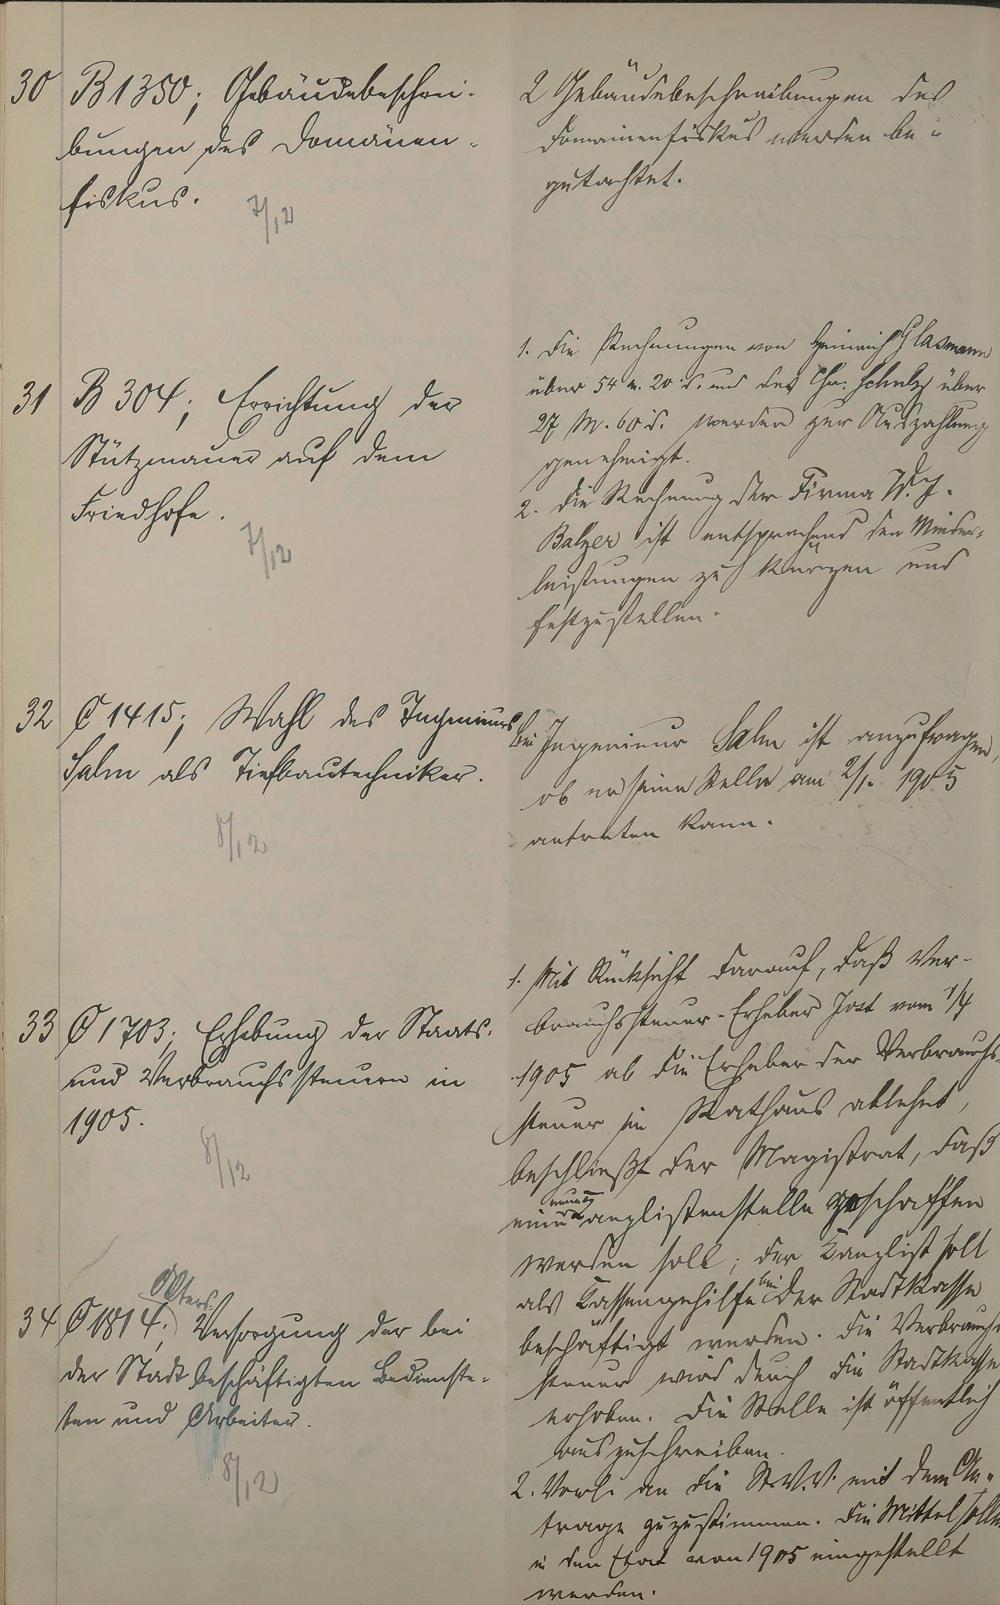 30 B 1350; Gebäudebeschrei-
bungen des Domänen-
fiskus.
7/12
2 Gebäudebeschreibungen des
Domänenfiskus werden be-
gutachtet.
31 B 304; Errichtung der
Stützmauer auf dem
Friedhofe.
7/12
1. Die Rechnungen von Heinrich Glasmann
über 54 M. 20 d. und des Chr. Schultz über
27 M. 60 d. werden zur Auszahlung
genehmigt.
2. Die Rechnung der Firma W. J.
Balzer ist entsprechend den Minder-
leistungen zu kürzen und
festzustellen.
32 C 1415; Wahl des Ingenieurs
Salm als Tiefbautechniker.
8/12
Bei Ingenieur Salm ist anzufragen,
ob er seine Stelle am 2/1. 1905
antreten kann.
33 C 1703; Erhebung der Staats-
und Verbrauchssteuern in
1905.
8/12
1. Mit Rücksicht darauf, daß Ver-
brauchssteuer-Erheber Jost vom 1/4
1905 ab die Erheber der Verbrauchs-
steuer im Rathaus ablehnt,
beschließt der Magistrat, daß
eine neue Kanzlistenstelle geschaffen
werden soll; der Kanzlist soll
als Kassengehilfe bei der Stadtkasse
beschäftigt werden. Die Verbrauchs-
steuer wird durch die Stadtkasse
erhoben. Die Stelle ist öffentlich
auszuschreiben.
2. Vorl. an die St.V.V. mit dem An-
trage zuzustimmen. Die Mittel sollen
in den Etat von 1905 eingestellt
werden.
34 C 1814; Alters Versorgung der bei
der Stadt beschäftigten Bedienste-
ten und Arbeiter.
8/12